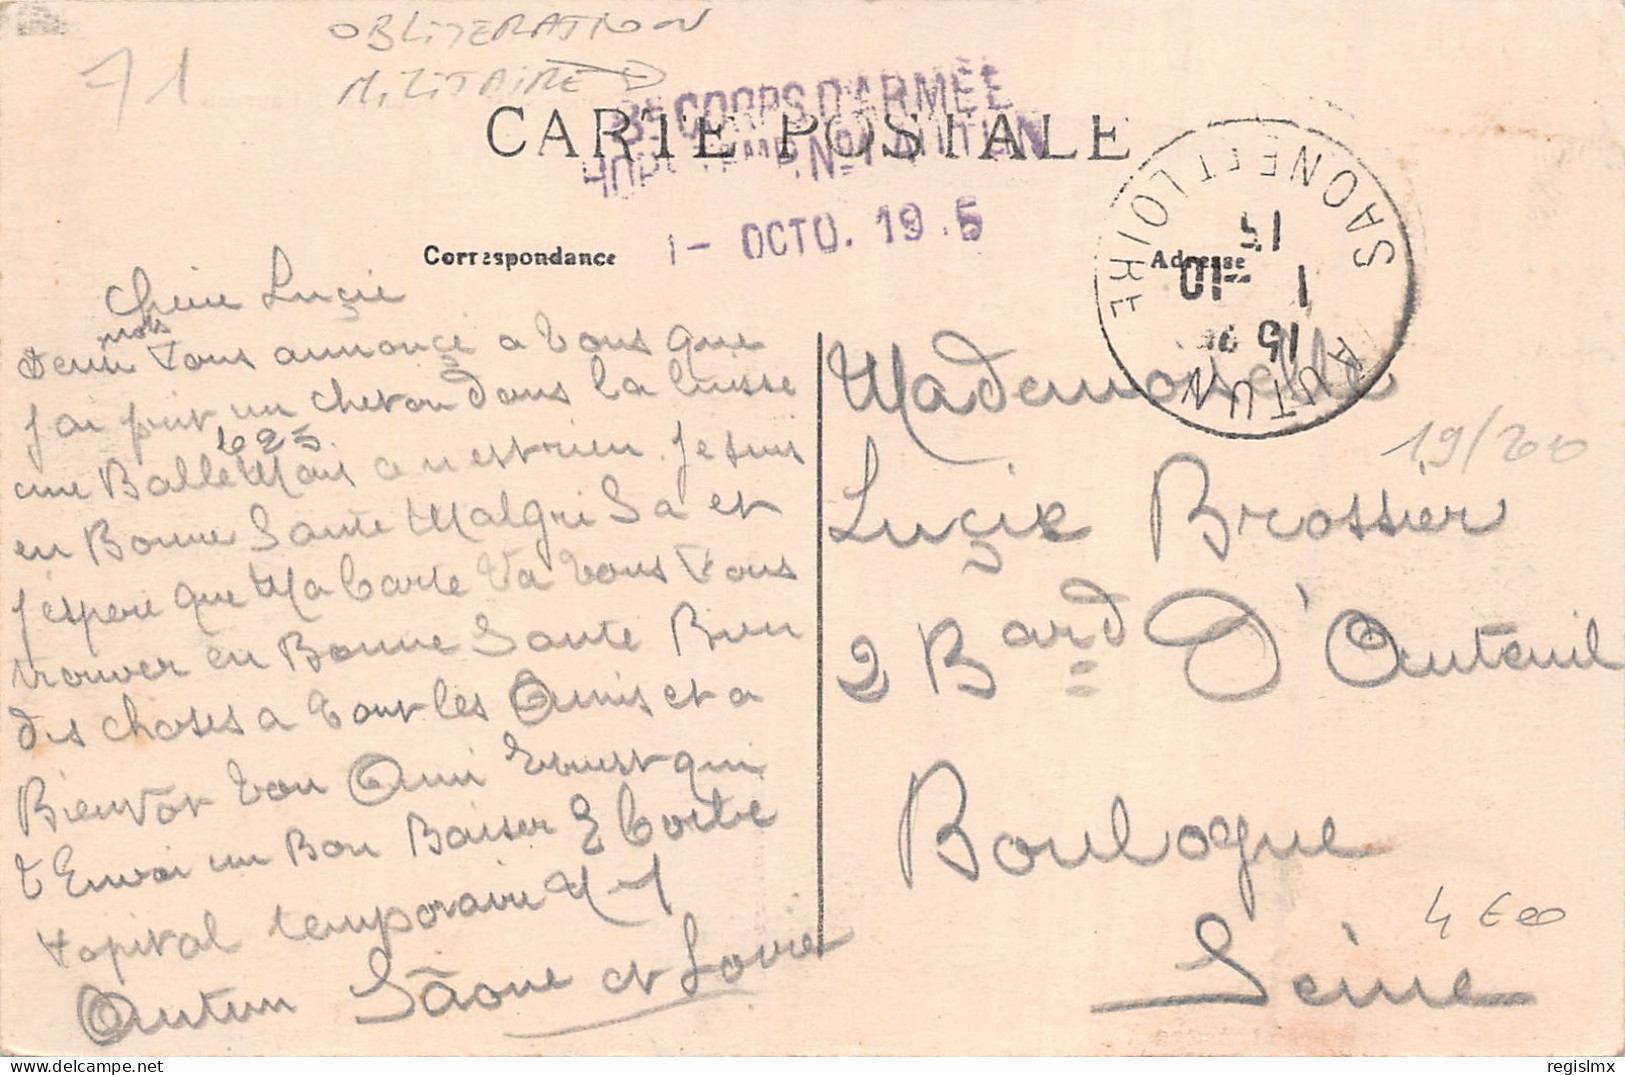 71
OBLITERATION
MILITAIRE
CARTE POSTALE
8e CORPS D'ARMÉE
HOP TEMP. No 1 AUTUN
1 - OCTO. 19 5
Correspondance
Adresse
SAONE ET LOIRE
15
1 -10
15
AUTUN
Cherie Lucie
deux mots vous annonce a vous que
j'ai prit un chevon dans la cuisse
une Balle Mais ce n est rien. Je suis
en Bonne Sante Malgré Sa et
J'espere que Ma Carte Va vous vous
trouver en Bonne Sante Bien
des choses a tout les Amis et a
Bientot ton Ami Ernest qui
t Envoi un Bon Baiser
topital temporaire N-1
Autun Sâone et Loire
Mademoiselle
Lucie Brossier
2 Bard D'Auteuil
Boulogne
Seine
19/200
4 €00
regislmx